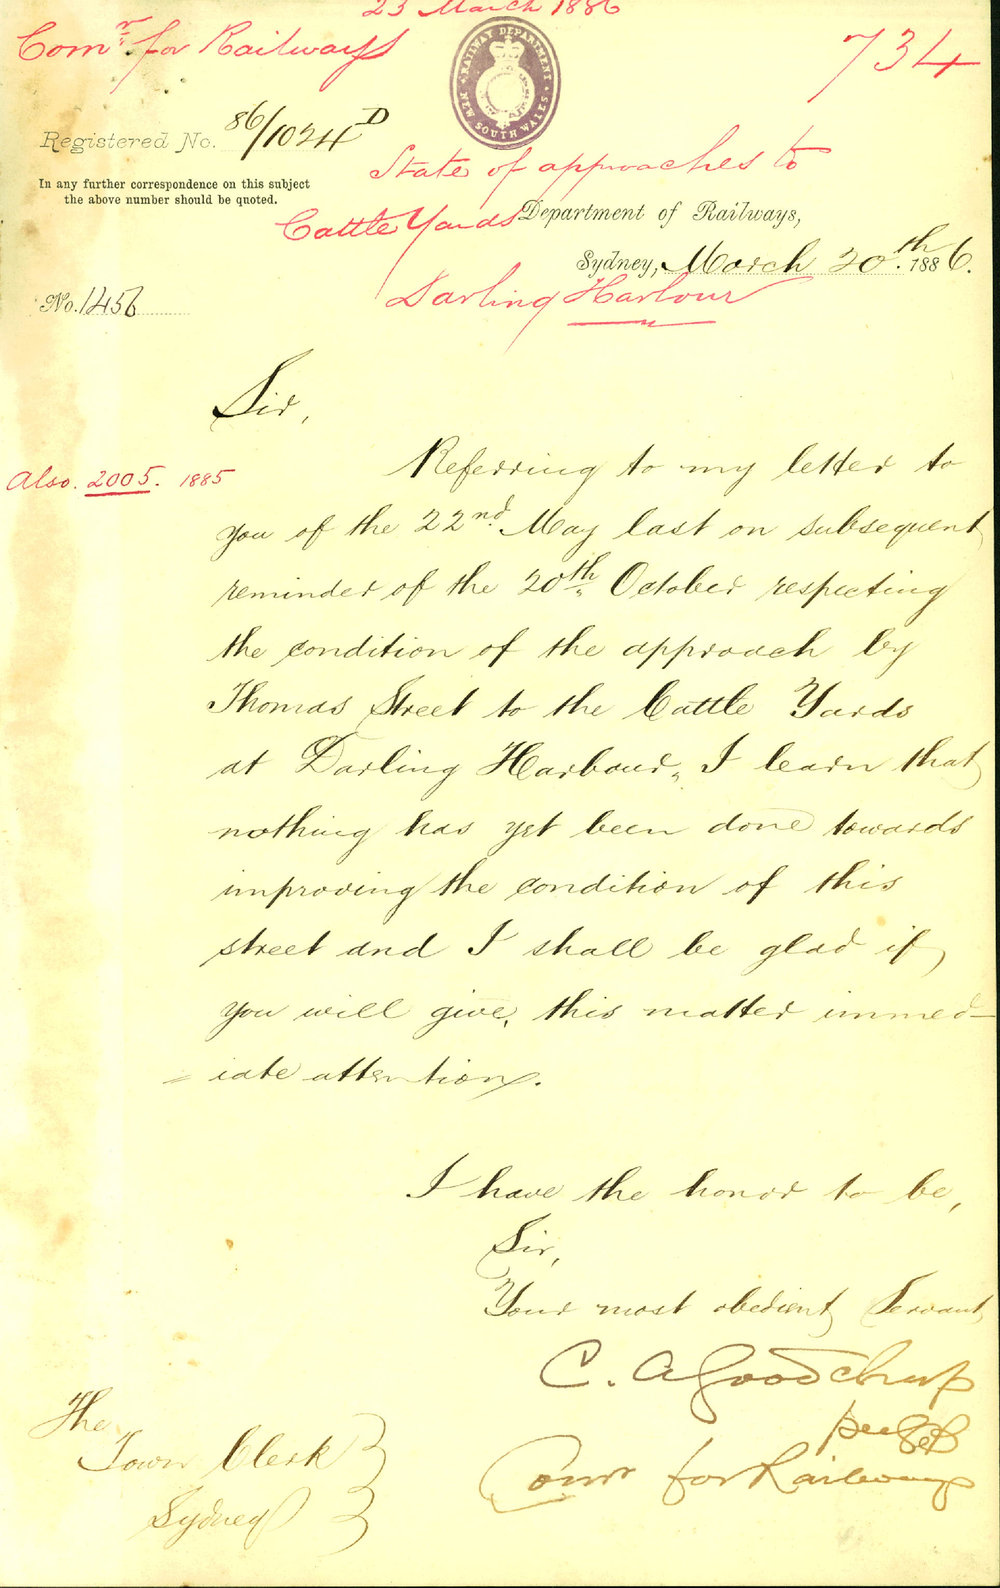 23 March 1886
Comr. for Railways
734
RAILWAY DEPARTMENT
NEW SOUTH WALES
Registered No. 86/1024 D
In any further correspondence on this subject
the above number should be quoted.
State of approaches to
Cattle Yards
Darling Harbour
Department of Railways,
Sydney, March 20th. 1886.
No. 1456
Sir,
Also. 2005. 1885
Referring to my letter to
you of the 22nd. May last on subsequent
reminder of the 20th October respecting
the condition of the approach by
Thomas Street to the Cattle Yards
at Darling Harbour, I learn that
nothing has yet been done towards
improving the condition of this
street and I shall be glad if
you will give, this matter immed-
iate attention.
I have the honor to be,
Sir,
Your most obedient Servant
C. A Goodchap
Comr for Railways
The
Town Clerk
Sydney